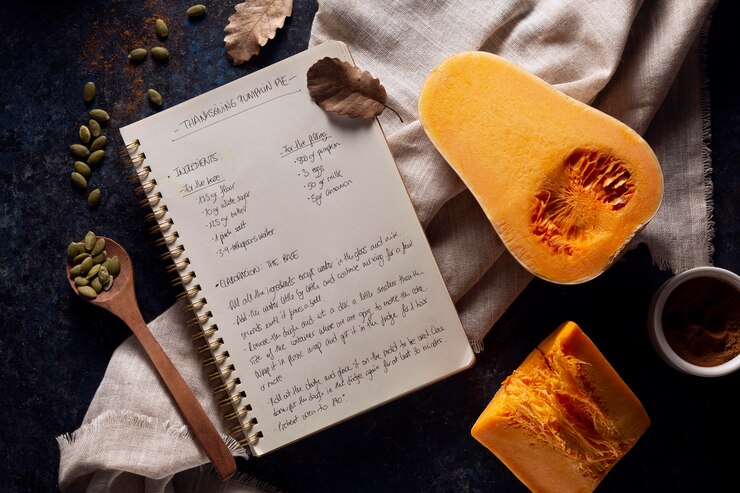 - THANKSGIVING PUMPKIN PIE -
• INGREDIENTS:
For the base
· 175 gr flour
· 10 gr white sugar
· 115 gr butter
· 1 pinch salt
· 3-4 tablespoons water
For the filling
· 500 gr pumpkin
· 3 eggs
· 50 gr milk
· 5 gr cinnamon
• ELABORATION: THE BASE
- Put all the ingredients except water in the glass and mix
- Add the water little by little and continue mixing for a few
seconds until it forms a ball.
- Remove the dough and at a disc a little smaller than the
size of the container where we are going to make the cake.
Wrap it in plastic wrap and put it in the fridge for 1 hour
or more.
- Roll out the dough and place it on the mold to be used. Once
done put the dough in the fridge again for at least 30 minutes.
- Preheat oven to 190°